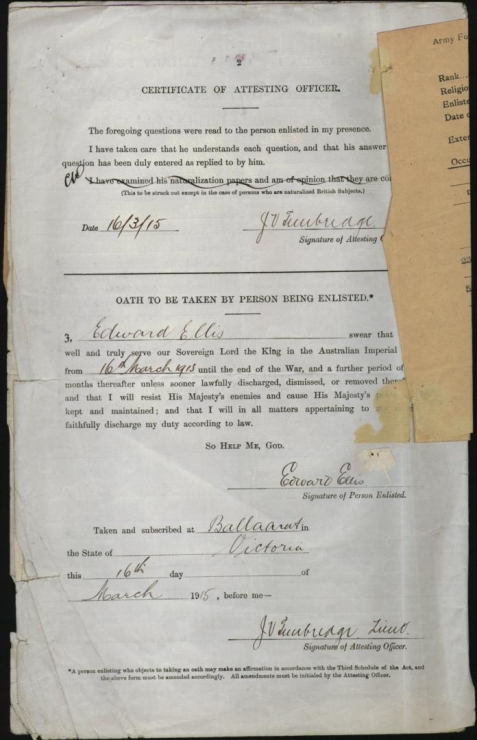 2
CERTIFICATE OF ATTESTING OFFICER.
The foregoing questions were read to the person enlisted in my presence.
I have taken care that he understands each question, and that his answer
question has been duly entered as replied to by him.
I have examined his naturalization papers and am of opinion that they are cor
(This to be struck out except in the case of persons who are naturalized British Subjects.)
Date 16/3/15 J V Tunbridge
Signature of Attesting O
OATH TO BE TAKEN BY PERSON BEING ENLISTED.*
3, Edward Ellis swear that
well and truly serve our Sovereign Lord the King in the Australian Imperial
from 16th March 1915 until the end of the War, and a further period of
months thereafter unless sooner lawfully discharged, dismissed, or removed there
and that I will resist His Majesty's enemies and cause His Majesty's
kept and maintained; and that I will in all matters appertaining to
faithfully discharge my duty according to law.
SO HELP ME, GOD.
Edward Ellis
Signature of Person Enlisted.
Taken and subscribed at Ballaarat in
the State of Victoria
this 16th day of
March 1915, before me—
J V Tunbridge Lieut.
Signature of Attesting Officer.
*A person enlisting who objects to taking an oath may make an affirmation in accordance with the Third Schedule of the Act, and
the above form must be amended accordingly. All amendments must be initialed by the Attesting Officer.
Army Fo
Rank...
Religio
Enliste
Date o
Exter
Occu